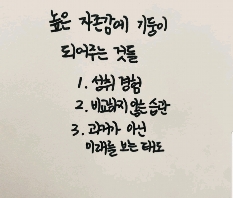 높은 자존감에 기둥이
되어주는 것들
1. 성취 경험
2. 비교하지 않는 습관
3. 과거가 아닌
미래를 보는 태도